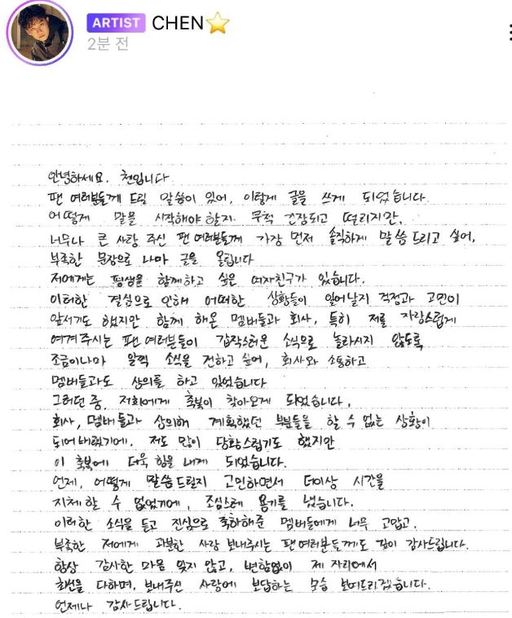 ARTIST CHEN
2분 전
안녕하세요. 첸입니다
팬 여러분들께 드릴 말씀이 있어, 이렇게 글을 쓰게 되었습니다.
어떻게 말을 시작해야 할지 무척 긴장되고 떨리지만,
너무나 큰 사랑 주신 팬 여러분들께 가장 먼저 솔직하게 말씀 드리고 싶어,
부족한 문장으로 나마 글을 올립니다
저에게는 평생을 함께하고 싶은 여자친구가 있습니다.
이러한 결심으로 인해 어떠한 상황들이 일어날지 걱정과 고민이
앞서기도 했지만 함께 해온 멤버들과 회사, 특히 저를 자랑스럽게
여겨주시는 팬 여러분들이 갑작스러운 소식으로 놀라시지 않도록
조금이나마 일찍 소식을 전하고 싶어, 회사와 소통하고
멤버들과도 상의를 하고 있었습니다
그러던 중, 저희에게 축복이 찾아오게 되었습니다.
회사, 멤버들과 상의해 계획했던 부분들을 할 수 없는 상황이
되어버렸기에. 저도 많이 당황스럽기도 했지만
이 축복에 더욱 힘을 내게 되었습니다.
언제, 어떻게 말씀드릴지 고민하면서 더이상 시간을
지체할 수 없었기에, 조심스레 용기를 냈습니다.
이러한 소식을 듣고 진심으로 축하해준 멤버들에게 너무 고맙고,
부족한 저에게 과분한 사랑 보내주시는 팬여러분들께도 깊이 감사드립니다.
항상 감사한 마음 잊지 않고, 변함없이 제 자리에서
최선을 다하며, 보내주신 사랑에 보답하는 모습 보여드리겠습니다.
언제나 감사드립니다.